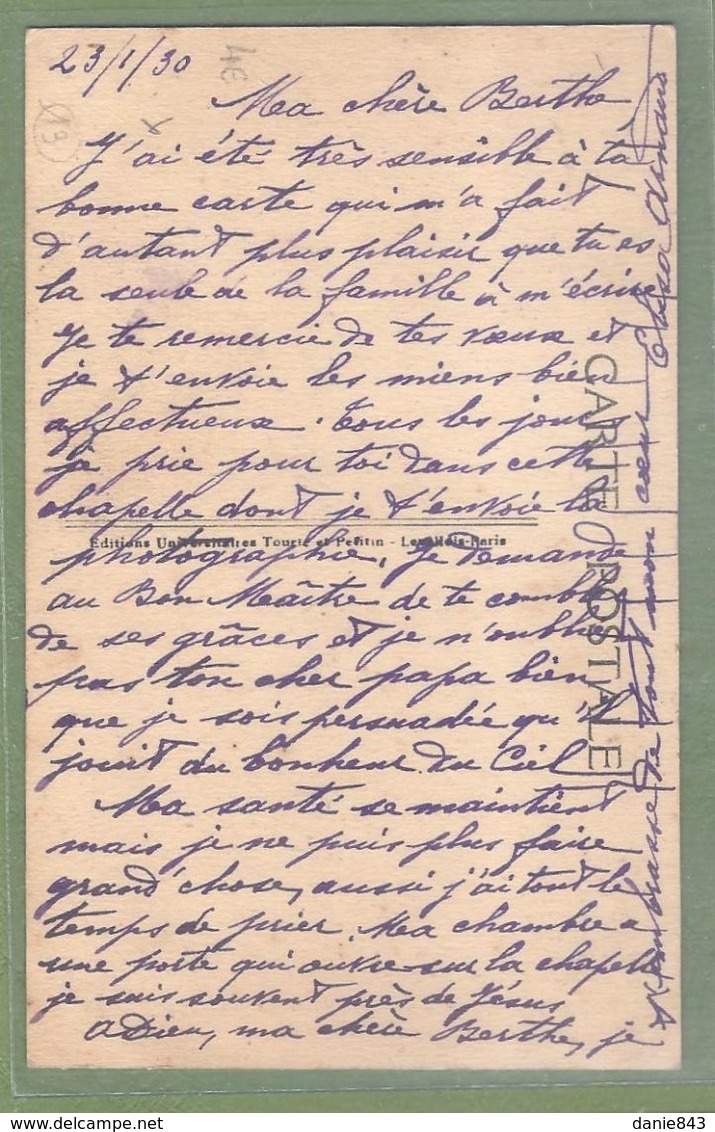 23/1/30
4€
13
Ma chère Berthe
J'ai été très sensible à ta
bonne carte qui m'a fait
d'autant plus plaisir que tu es
la seule de la famille à m'écrire
Je te remercie de tes vœux et
je t'envoie les miens bien
affectueux. Tous les jours
je prie pour toi dans cette
chapelle dont je t'envoie la
photographie, je demande
au Bon Maître de te combler
de ses grâces et je n'oublie
pas ton cher papa bien
que je sois persuadée qu'il
jouit du bonheur du Ciel
Ma santé se maintient
mais je ne puis plus faire
grand'chose, aussi j'ai tout le
temps de prier. Ma chambre a
une porte qui ouvre sur la chapelle
je suis souvent près de Jésus
A Dieu, ma chère Berthe, je
t'embrasse de tout mon cœur
CARTE POSTALE
Editions Universitaires Tourte et Petitin - Levallois-Paris
danie843